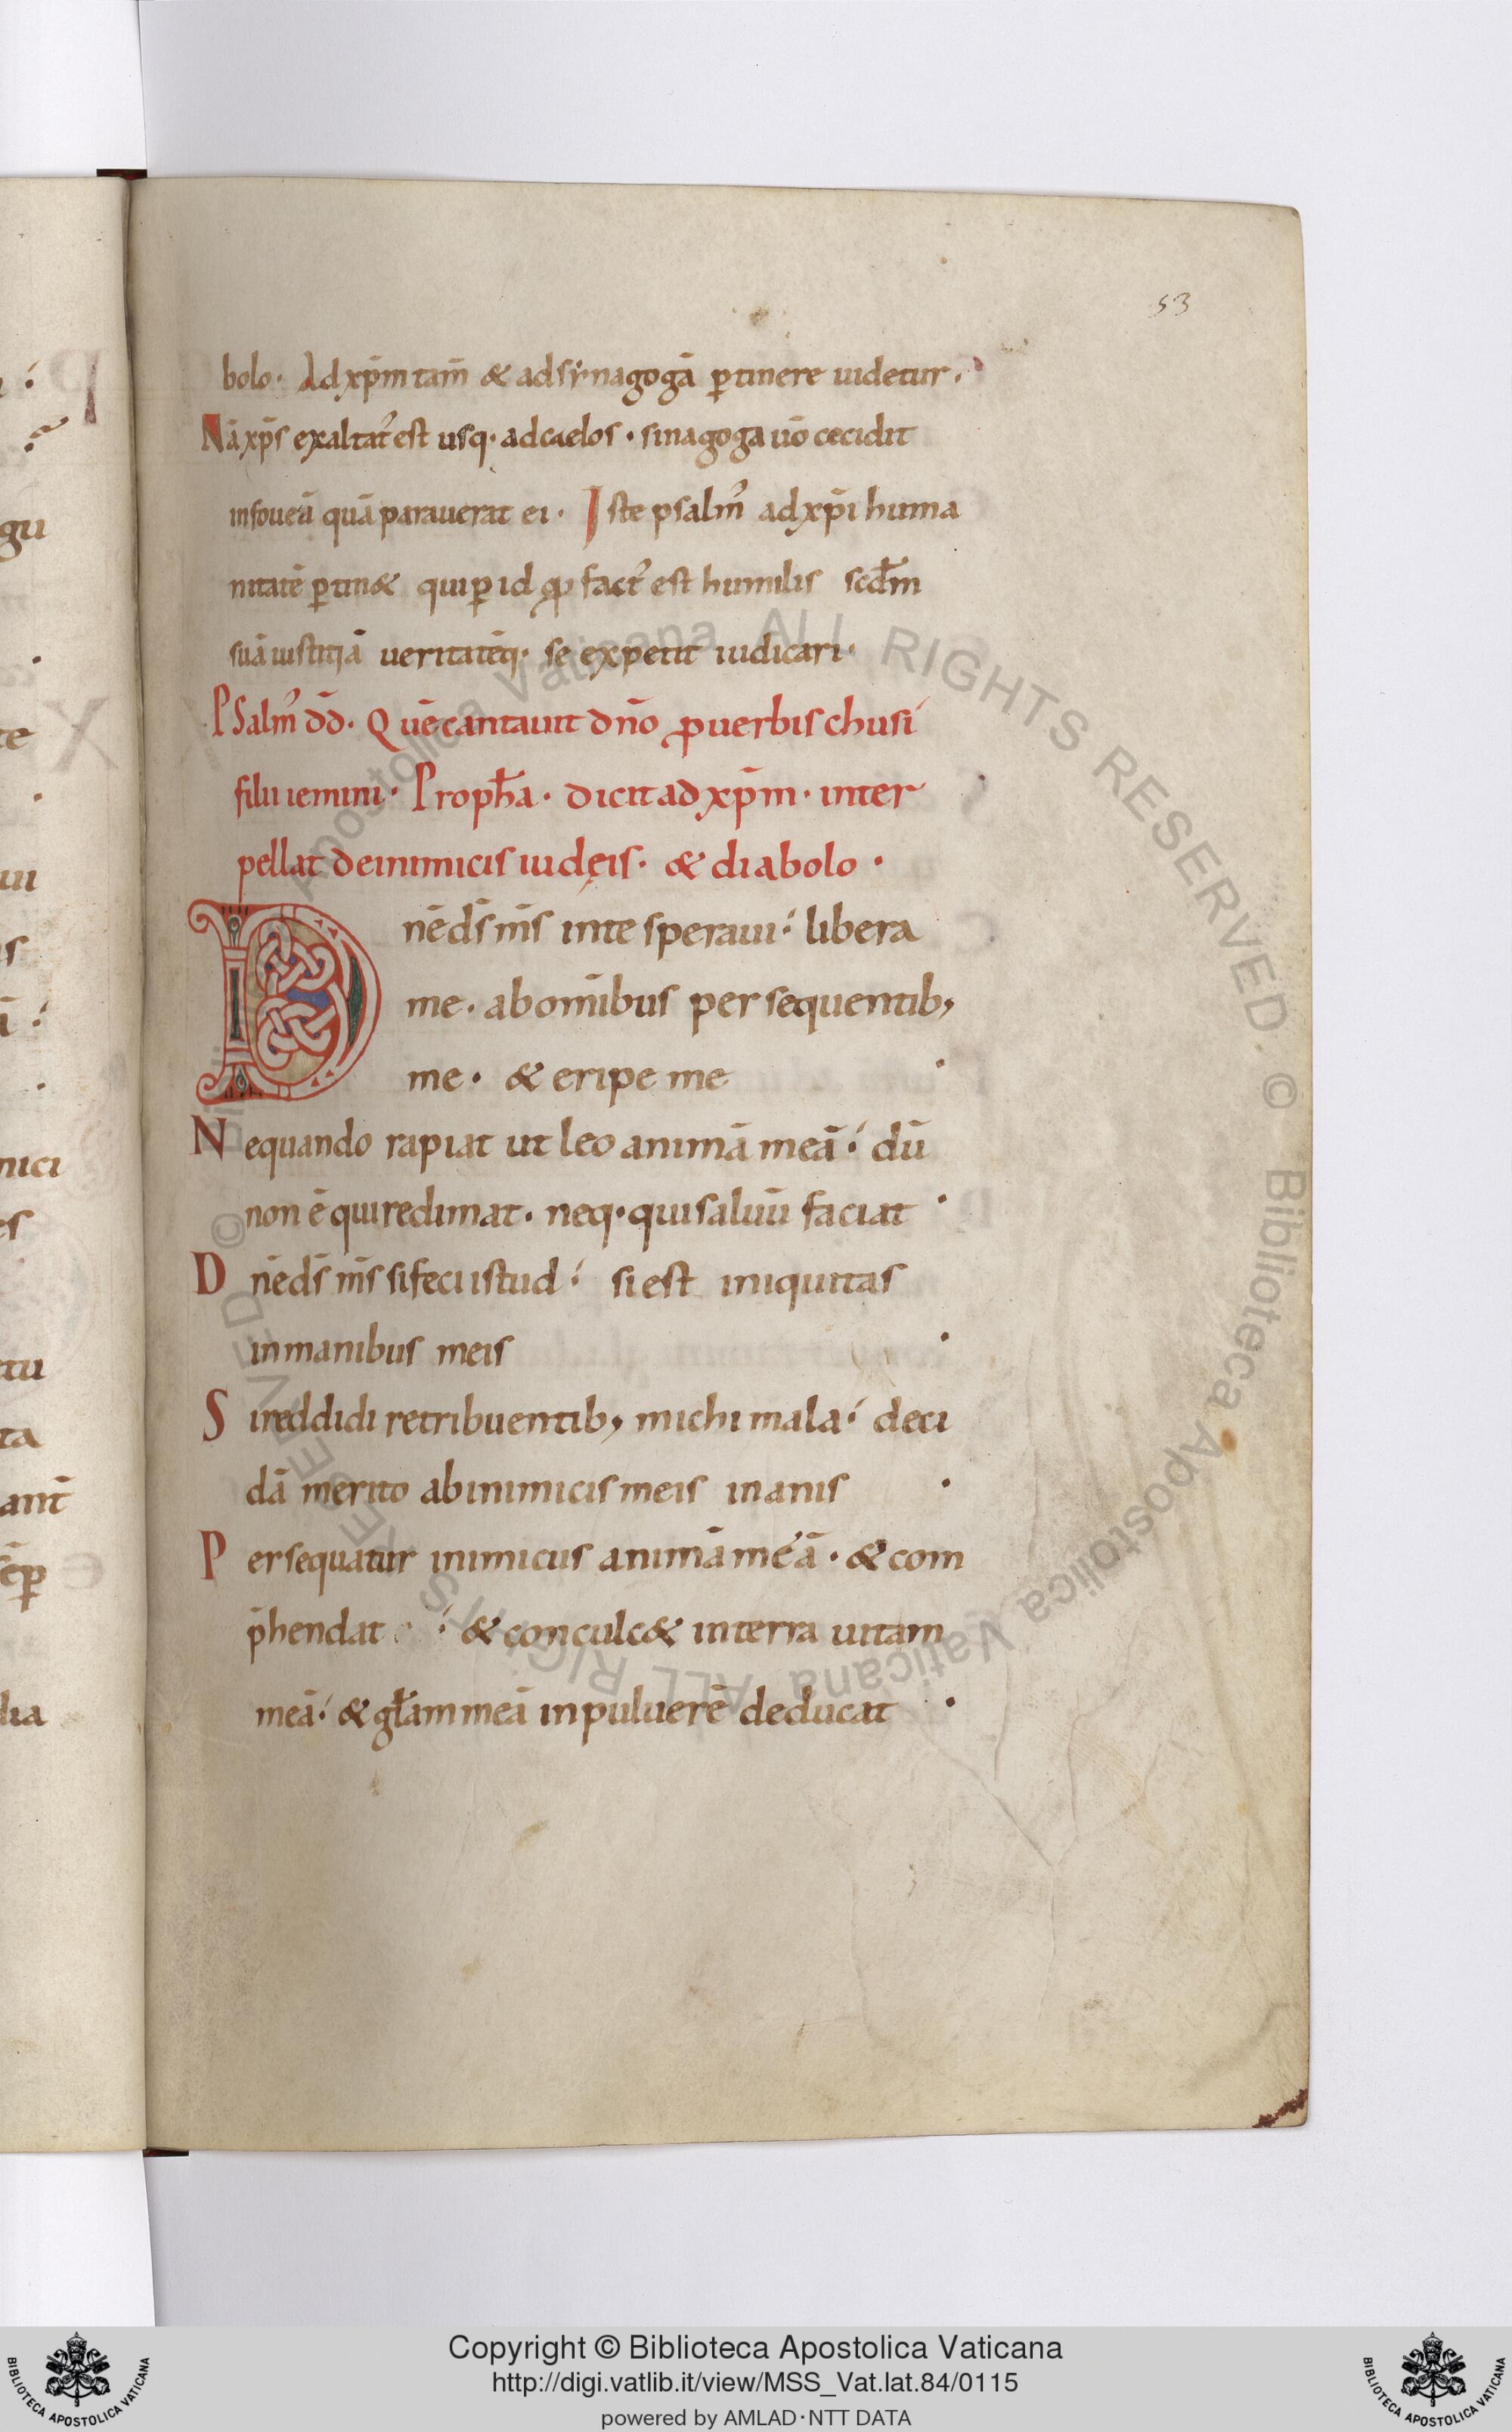 53
bolo · Ad xp̄m tam̄ & adsẏnagogā ꝑtinere uidetur ·
Nā xp̄s exaltat᷒ est usq· adcaelos · sinagoga uō cecidit
infoueā quā parauerat ei · Iste psalm᷒ adxp̄i huma
nitatē ꝑtin& qui ꝑ id qđ fact᷒ est humilis scđm
suā iustitiā ueritatēq· se expetit iudicari ·
PSalm᷒ dd̄ · Quē cantauit dn̄o ꝓuerbis chusi
filii iemini · Proph̄a · dicit ad xp̄m · inter
pellat deinimicis iudęis · & diabolo ·
Dn̄e ds̄ ms̄ inte speraui : libera
me · abom̄ibus persequentib;
me · & eripe me ·
Nequando rapiat ut leo animā meā : dū
non ē quiredimat · neq· quisaluū faciat ·
Dn̄e ds̄ ms̄ sifeci istud : siest iniquitas
inmanibus meis ·
Sireddidi retribuentib; michi mala : deci
dā merito abinimicis meis inanis ·
Persequatur inimicus animā meā · & com
p̄hendat : & conculc& interra uitam
meā : & gl̄am meā inpuluerē deducat ·
gu
te
ui
nici
es
tu
ta
ant̄
sēp
lia
© Biblioteca Apostolica Vaticana ALL RIGHTS RESERVED
Copyright © Biblioteca Apostolica Vaticana
http://digi.vatlib.it/view/MSS_Vat.lat.84/0115
powered by AMLAD·NTT DATA
BIBLIOTECA APOSTOLICA VATICANA
BIBLIOTECA APOSTOLICA VATICANA